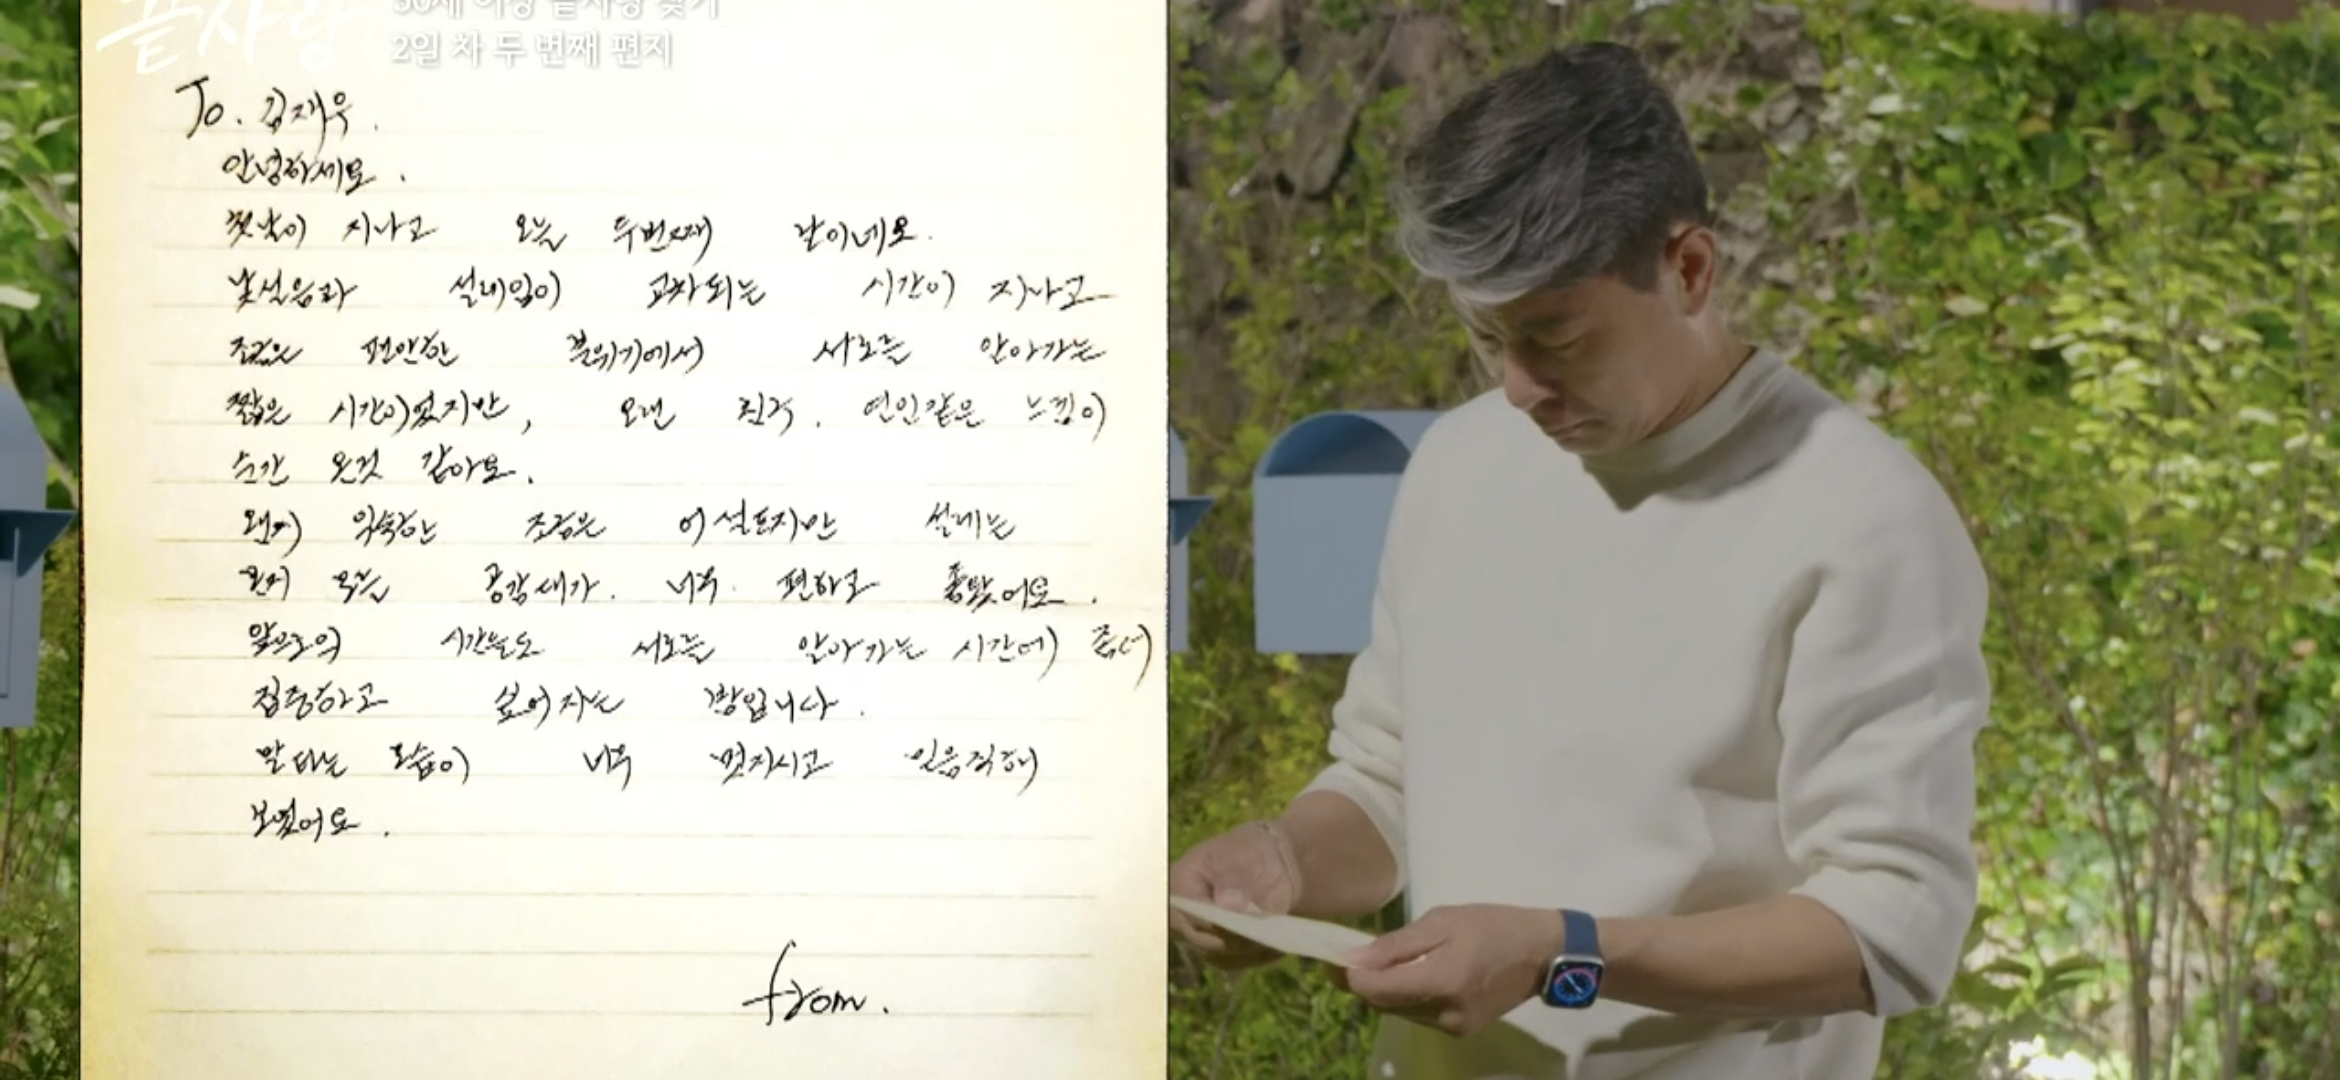 끝사랑
50세 이상 끝사랑 찾기
2일 차 두 번째 편지
To. 김재우.
안녕하세요.
첫날이 지나고 오늘 두번째 날이네요.
낯설음과 설레임이 교차되는 시간이 지나고
조금은 편안한 분위기에서 서로를 알아가는
짧은 시간이었지만, 오랜 친구. 연인같은 느낌이
순간 온것 같아요.
왠지 익숙한 조금은 어설프지만 설레는
모를 공감대가. 너무. 편하고 좋았어요.
앞으로의 시간들도 서로를 알아가는 시간에 좀더
집중하고 싶어지는 밤입니다.
말타는 모습이 너무 멋지시고 믿음직해
보였어요.
from.